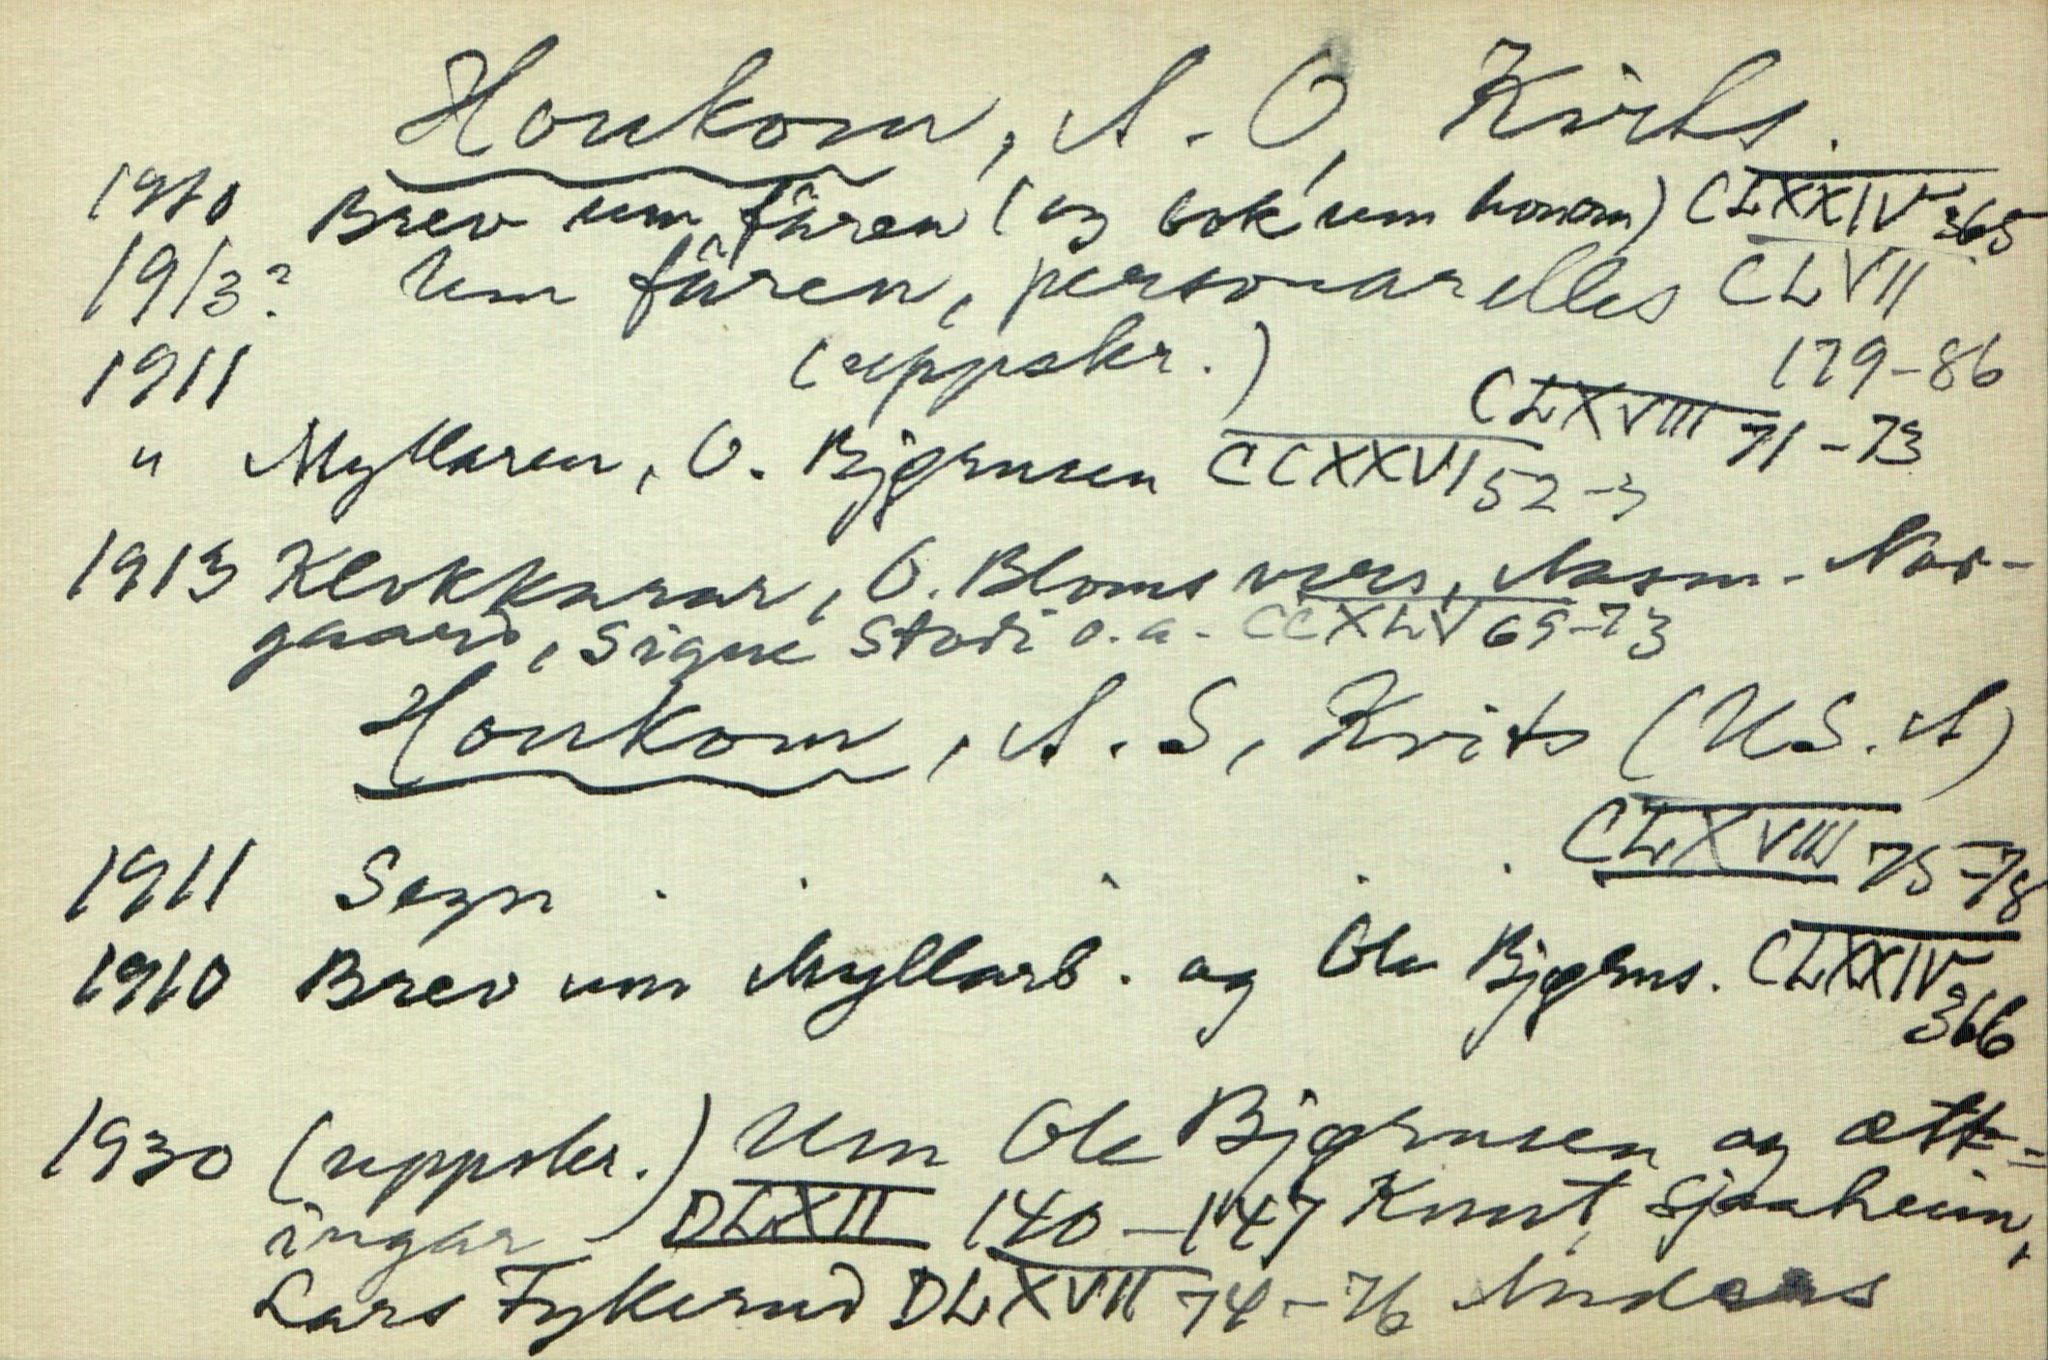 Houkom, A. O, Kvits.
1910 Brev um fåren (og bok um honom) CLXXIV 365
1913? Um fåren, personarelles CLVII
179-86
1911 (uppskr.) CLXVIII 71-73
" Myllaren, O. Bjørnsen CCXXVI 52-3
1913 Klokkarar, O. Bloms vers, Aasm. Nor-
gaard, Signe Stodi o.a. CCXLV 69-73
Houkom, A. S, Kvits (U.S.A)
1911 Segn . . . . . CLXVIII 75-78
1910 Brev um Myllarb. og Ole Bjørns. CLXXIV
366
1930 (uppskr.) Um Ole Bjørnsen og ætt-
ingar - DLXII 140-147 Knut Sjaaheim,
Lars Fykerud DLXVII 74-76 Anders